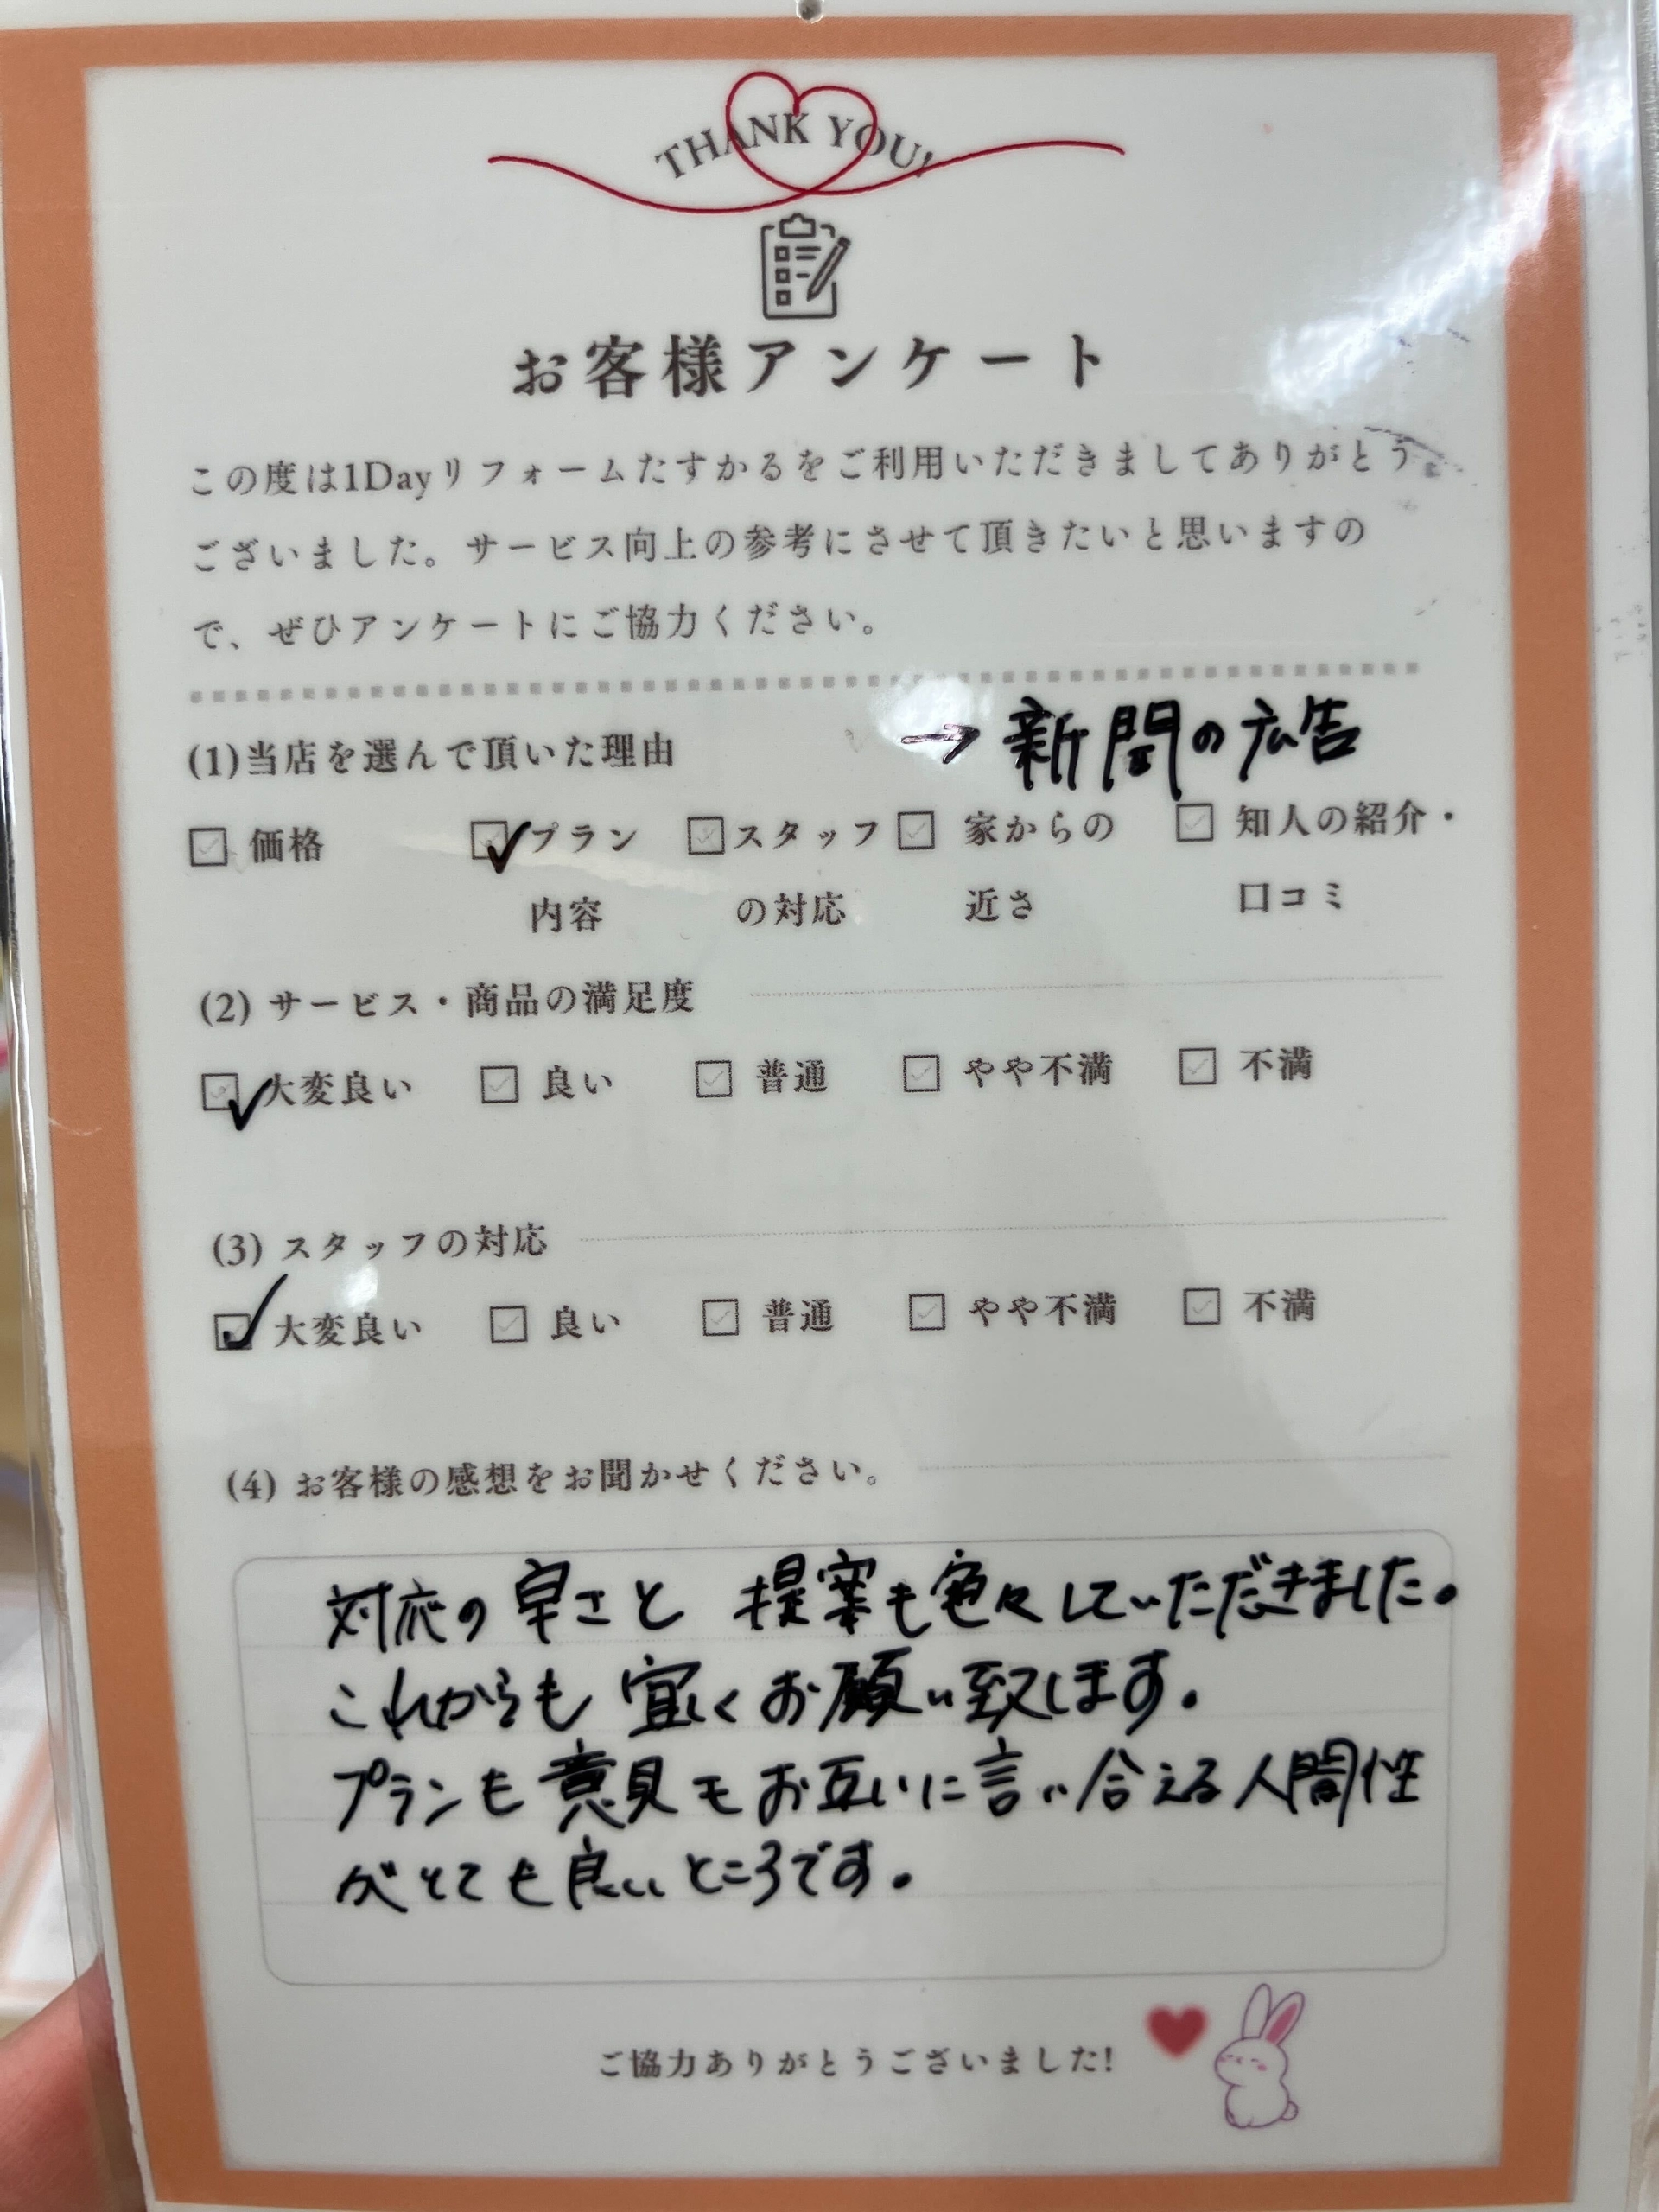 THANK YOU!
お客様アンケート
この度は1Dayリフォームたすかるをご利用いただきましてありがとう
ございました。サービス向上の参考にさせて頂きたいと思いますの
で、ぜひアンケートにご協力ください。
→新聞の広告
(1)当店を選んで頂いた理由
価格 プラン スタッフ 家からの 知人の紹介・
内容 の対応 近さ 口コミ
(2) サービス・商品の満足度
大変良い 良い 普通 やや不満 不満
(3) スタッフの対応
大変良い 良い 普通 やや不満 不満
(4) お客様の感想をお聞かせください。
対応の早さと 提案も色々していただきました。
これからも 宜しくお願い致します。
プランも意見もお互いに言い合える人間性
がとても良いところです。
ご協力ありがとうございました!